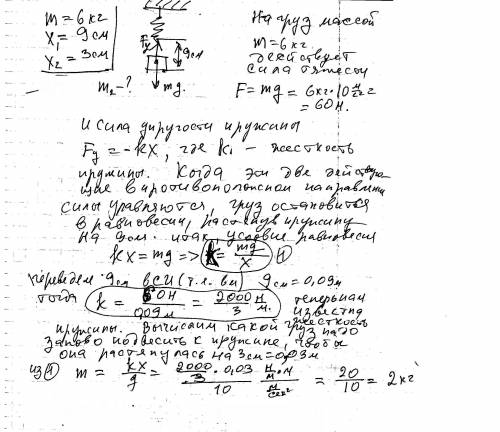 m = 6 кг
x₁ = 9 см
x₂ = 3 см
m₂ - ?
Fу
9см
mg.
На груз массой
m = 6 кг
действует
сила тяжести
F = mg = 6кг·10 м/с²
= 60 н.
и сила упругости пружины
Fу = -kx, где k - жесткость
пружины. Когда эти две действую
щие в противоположном направлении
силы уравняются, груз остановится
в равновесии, растянув пружину
на 9см. итак, условие равновесия
kx = mg => k = mg/x (1)
переведем 9см в СИ (т.е. в м) 9см = 0,09м
тогда k = 60Н/0,09м = 2000/3 Н/м. теперь нам
известна
жесткость
пружины. Вычислим какой груз надо
заново подвесить к пружине, чтобы
она растянулась на 3см = 0,03м
из (1) m = kx/g = 2000/3 · 0,03 Н/м · м / 10 м/сек² = 20/10 = 2кг